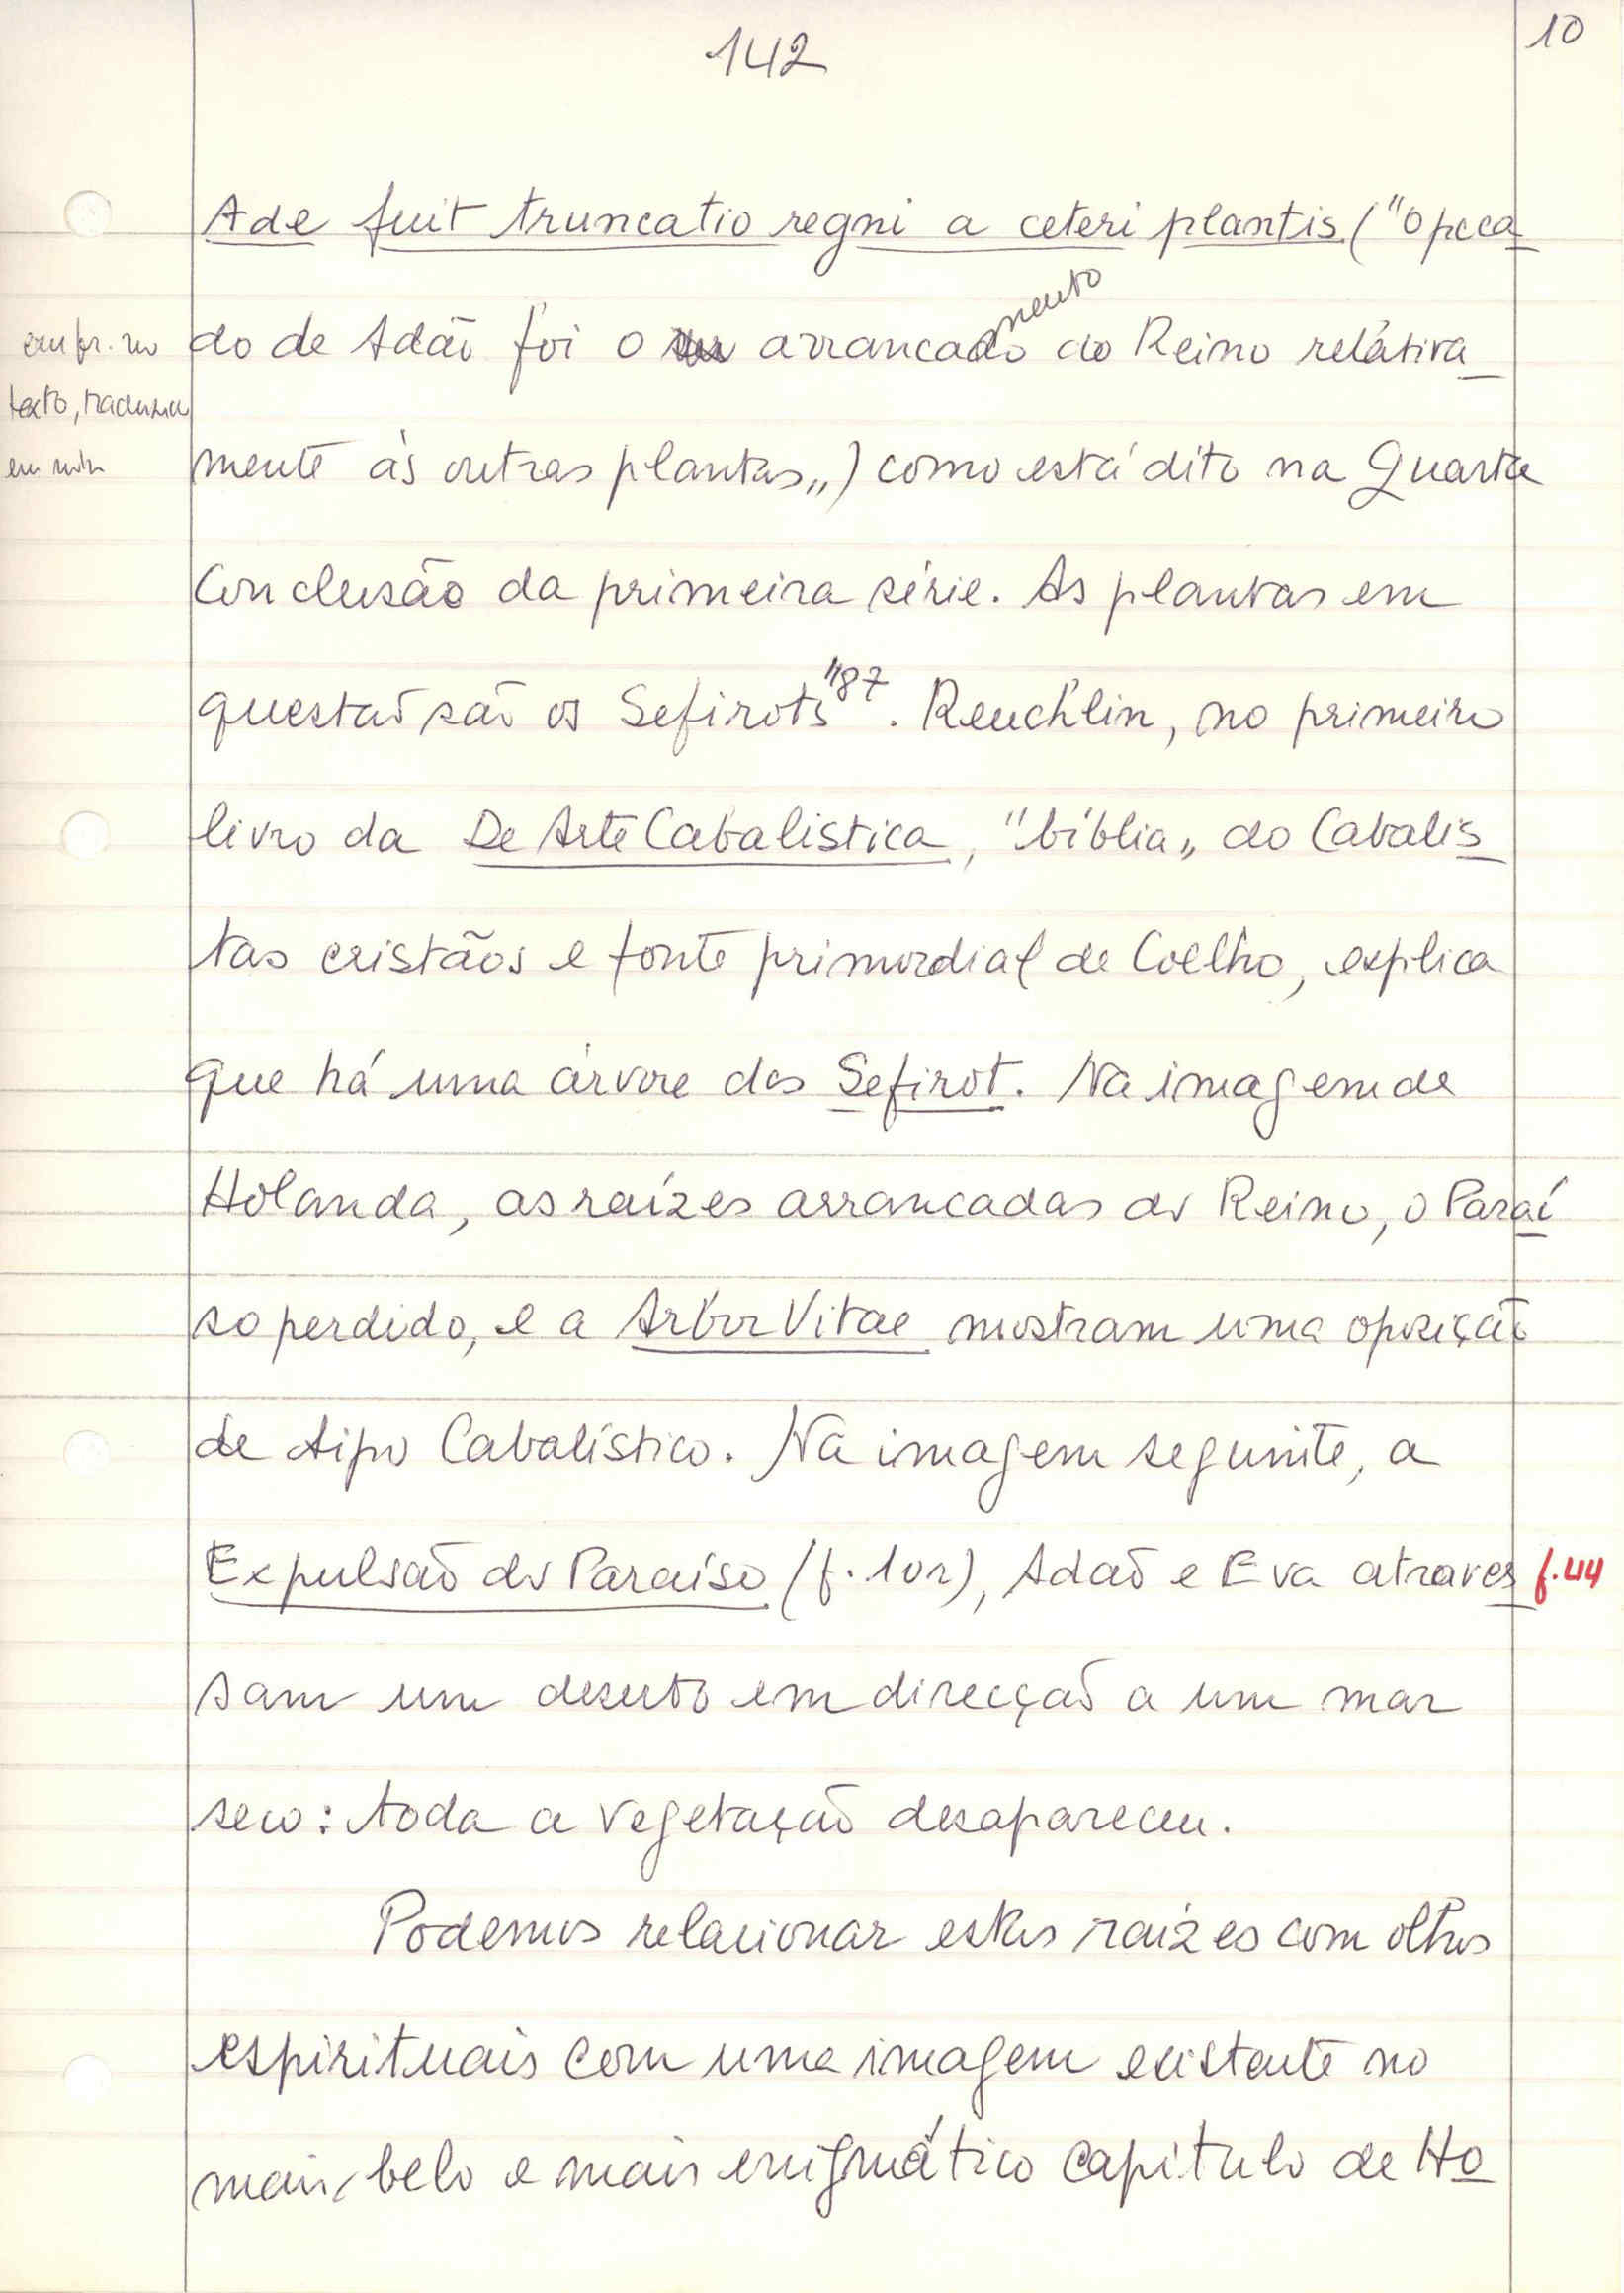 142
10
Ade fuit truncatio regni a ceteri plantis ("O peca
do de Adão foi o arrancamento do Reino relativa
em fr. no
texto, traduzido
em nota
mente às outras plantas„) como está dito na Quarta
Conclusão da primeira série. As plantas em
questão são os Sefirots"87. Reuchlin, no primeiro
livro da De Arte Cabalistica, "bíblia„ do Cabalis
tas cristãos e fonte primordial de Coelho, explica
que há uma árvore dos Sefirot. Na imagem de
Holanda, as raízes arrancadas do Reino, o Paraí
so perdido, e a Arbor Vitae mostram uma oposição
de tipo Cabalístico. Na imagem seguinte, a
Expulsão do Paraíso (f. 10r), Adão e Eva atraves
f.44
sam um deserto em direcção a um mar
seco: toda a vegetação desapareceu.
Podemos relacionar estas raízes com olhos
espirituais com uma imagem existente no
mais belo e mais enigmático capítulo de Ho